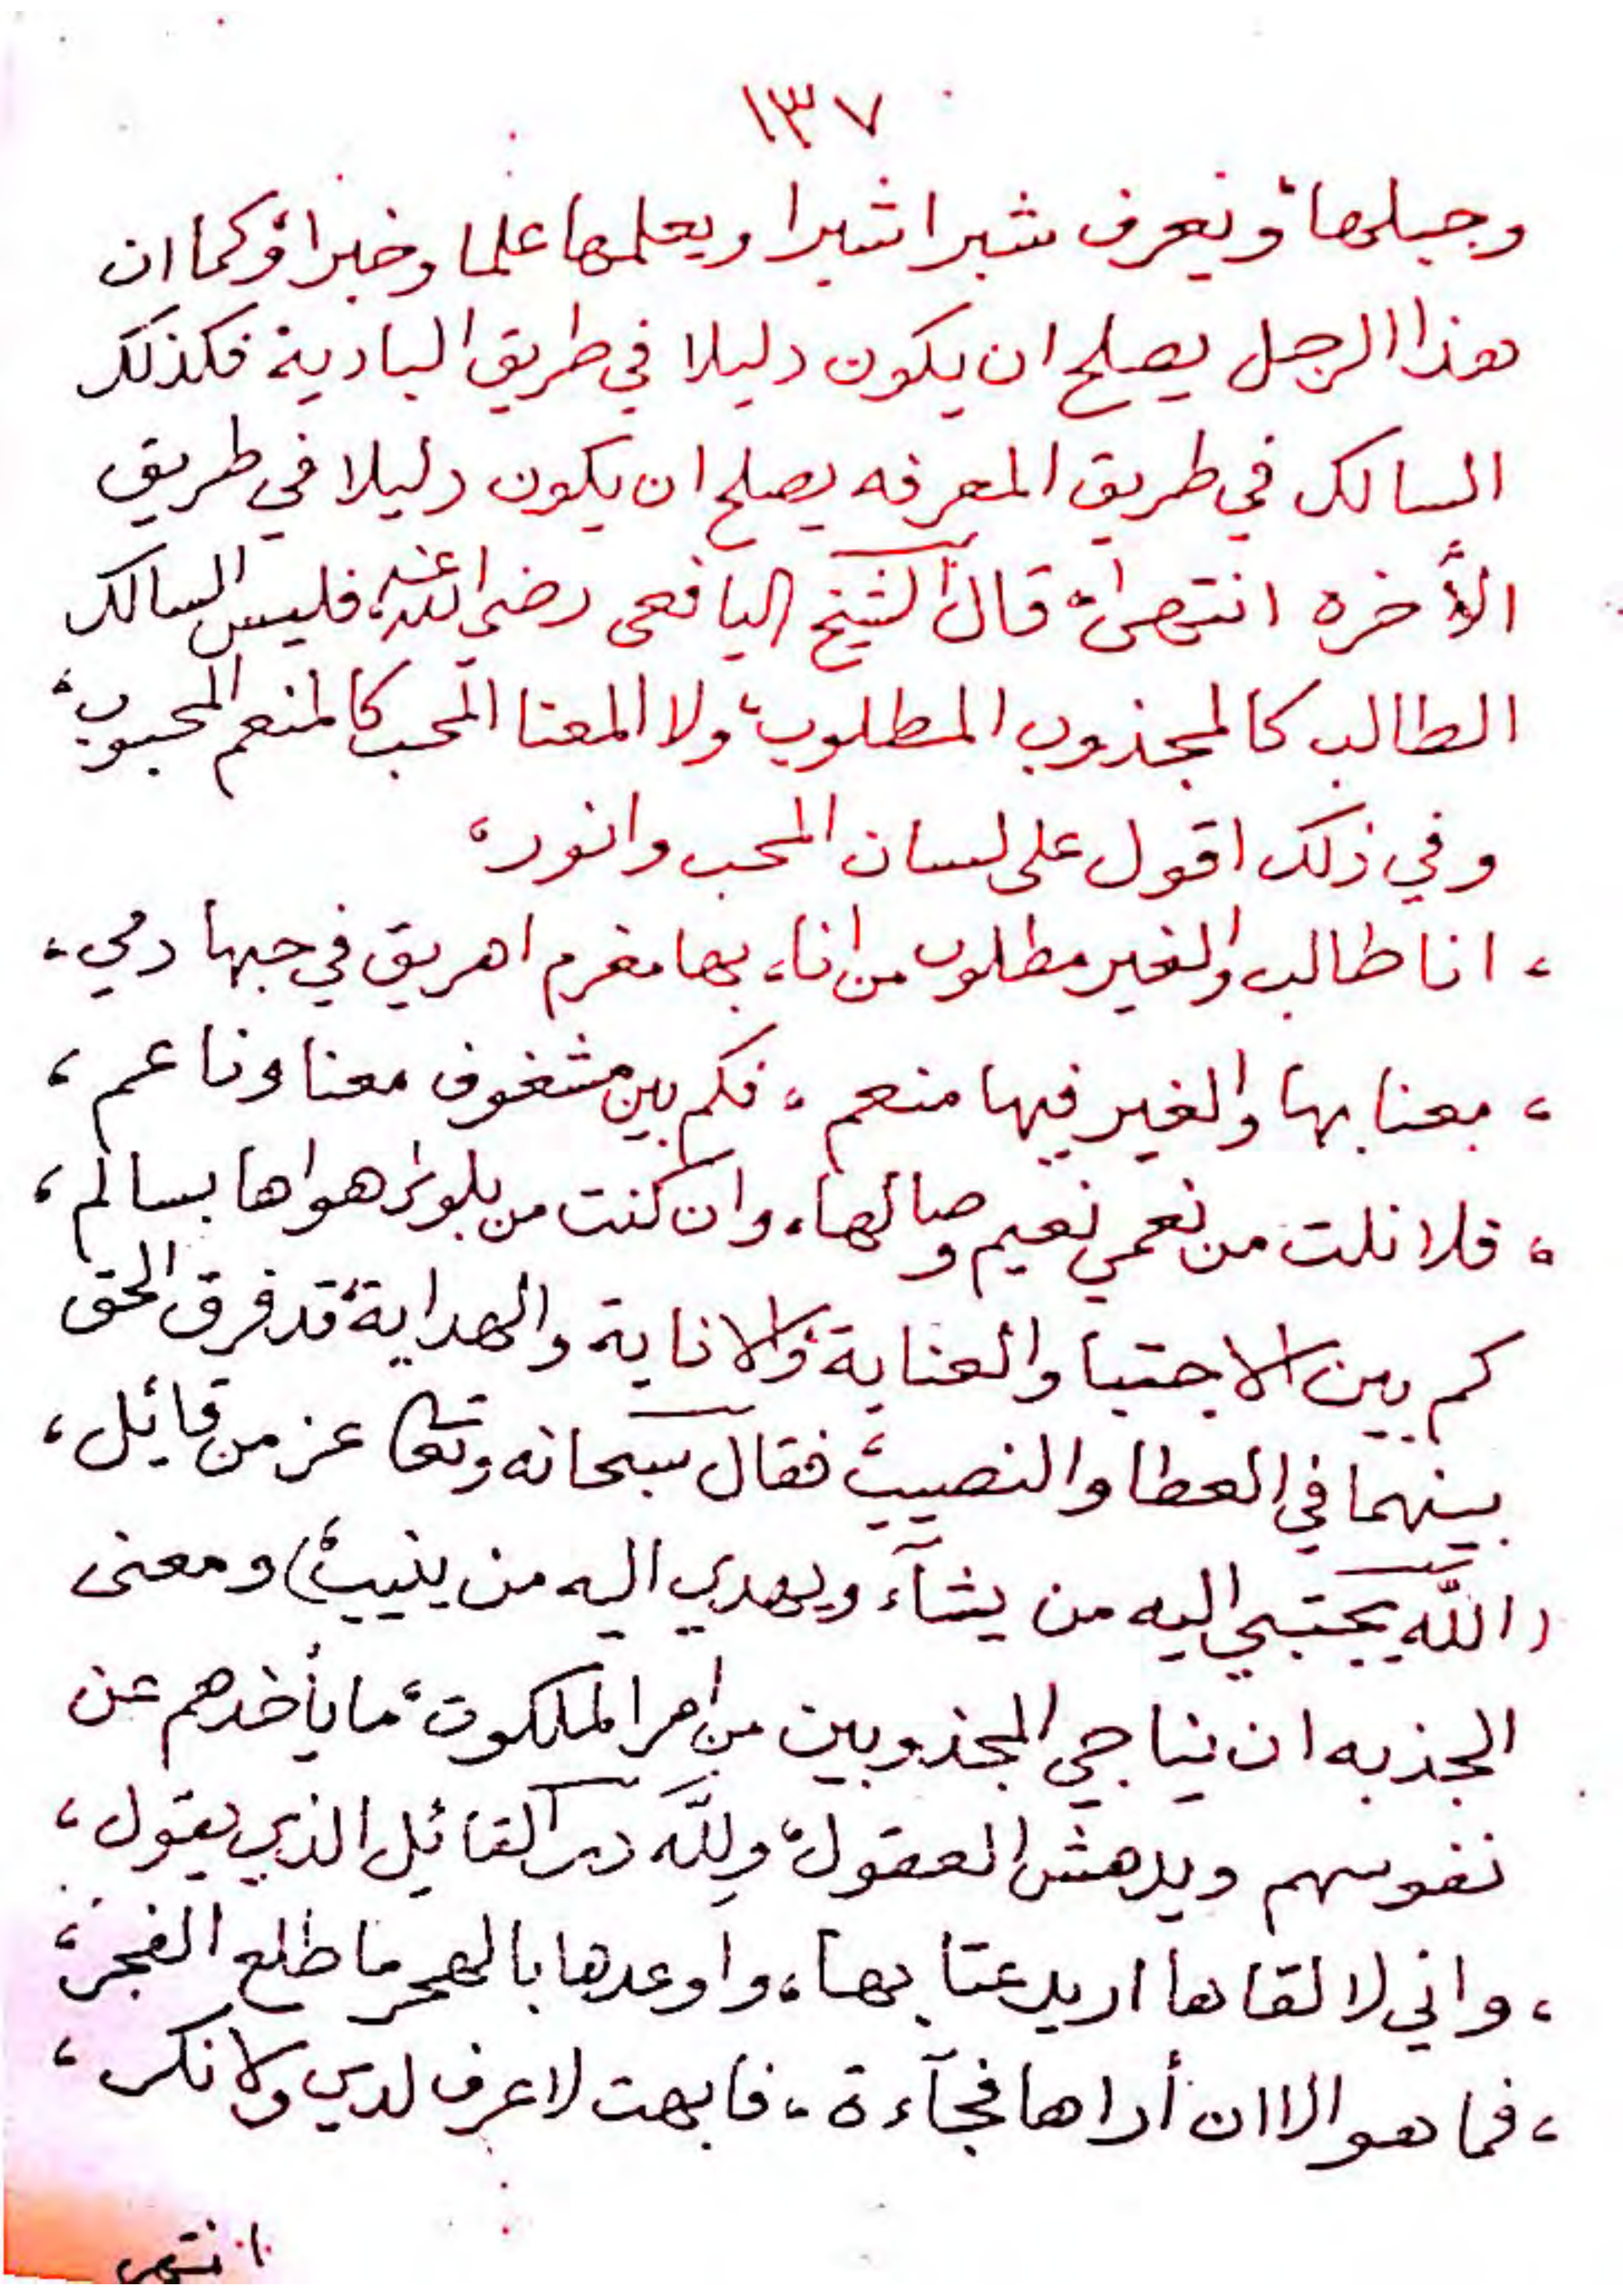 ١٣٧
وجبلها، ويعرف شبرا شبرا ويعلمها علما وخبرا، وكما ان
هذا الرجل يصلح ان يكون دليلا في طريق البادية فكذلك
السالك في طريق المعرفه يصلح ان يكون دليلا في طريق
الأخره انتهى، قال الشيخ اليافعى رضي الله عنه، فليس السالك
الطالب كالمجذوب المطلوب، ولا المعنا المحب كالمنعم المحبوب،
وفي ذلك اقول على لسان المحب وانور،
، انا طالب والغير مطلوب من انا، بها مغرم اهريق في حبها دمي،
، معنا بها والغير فيها منعم ، فكم بين مشغوف معنا وناعم ،
، فلا نلت من نعمي نعيم وصالها، وان كنت من بلوى هواها بسالم ،
كم بين الاجتبا والعناية، والانابة والهداية، قد فرق الحق
بينهما في العطا والنصيب، فقال سبحانه وتعا عز من قائل ،
(الله يجتبي اليه من يشآء ويهدي اليه من ينيب،) ومعنى
الجذبه ان يناجي المجذوبين من امر الملكوت، ما يأخذهم عن
نفوسهم ويدهش العقول، ولله در القائل الذي يقول ،
، واني لالقاها اريد عتابها، واوعدها بالهجر ما طلع الفجر،
، فما هو الا ان أراها فجآءة ، فابهت لا عرف لدي ولا نكر ،
انتهى